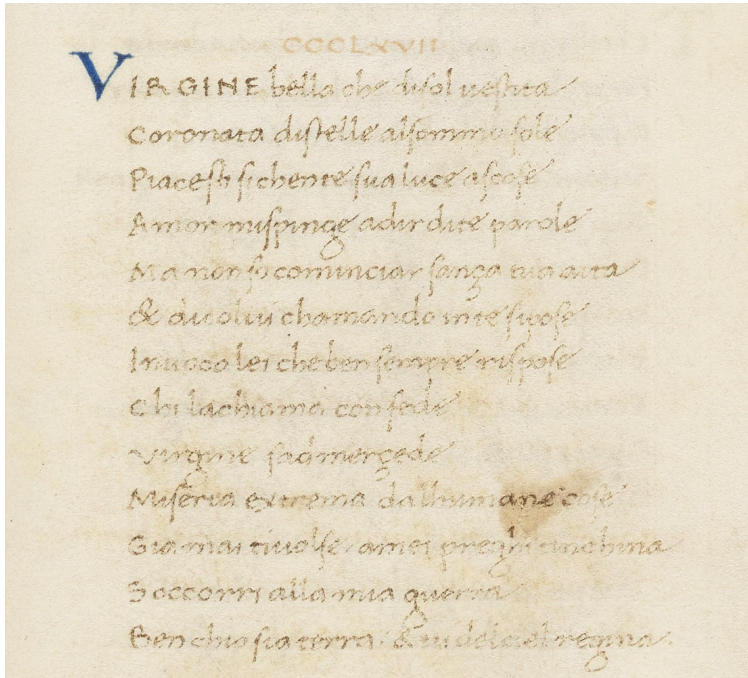 CCCLXVII
VIRGINE bella che disol vestita
Coronata distelle alsommo sole
Piacesti sichente sua luce ascose
Amor mispinge adir dite parole
Ma non so cominciar sança tua aita
& di colui chamando in te si pose
Invoco lei che ben sempre rispose
Chi la chiamo con fede
Virgine sad merçede
Miseria extrema dallhumane cose
Gia mai tivolse. amei preghi tinchina
Soccorri alla mia guerra
Ben chio sia terra. & tu del ciel regina.